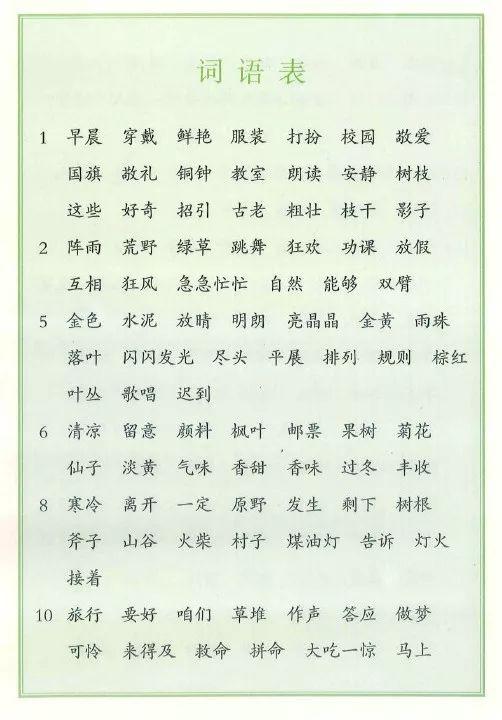 词语表
1 早晨 穿戴 鲜艳 服装 打扮 校园 敬爱
国旗 敬礼 铜钟 教室 朗读 安静 树枝
这些 好奇 招引 古老 粗壮 枝干 影子
2 阵雨 荒野 绿草 跳舞 狂欢 功课 放假
互相 狂风 急急忙忙 自然 能够 双臂
5 金色 水泥 放晴 明朗 亮晶晶 金黄 雨珠
落叶 闪闪发光 尽头 平展 排列 规则 棕红
叶丛 歌唱 迟到
6 清凉 留意 颜料 枫叶 邮票 果树 菊花
仙子 淡黄 气味 香甜 香味 过冬 丰收
8 寒冷 离开 一定 原野 发生 剩下 树根
斧子 山谷 火柴 村子 煤油灯 告诉 灯火
接着
10 旅行 要好 咱们 草堆 作声 答应 做梦
可怜 来得及 救命 拼命 大吃一惊 马上